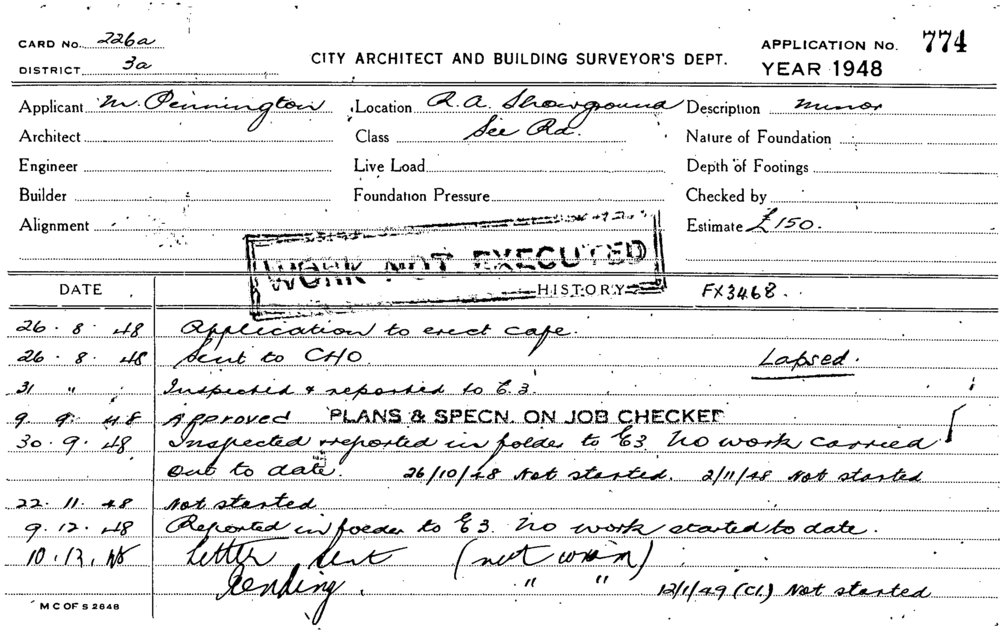 CARD No. 226a
DISTRICT 3a
CITY ARCHITECT AND BUILDING SURVEYOR'S DEPT.
APPLICATION No. 774
YEAR 1948
Applicant M. Pennington Location R.A. Showground Description Minor
Architect Class See Rd. Nature of Foundation
Engineer Live Load Depth of Footings
Builder Foundation Pressure Checked by
Alignment Estimate £150.
WORK NOT EXECUTED
DATE HISTORY FX3468.
26.8.48 Application to erect cafe.
26.8.48 Sent to CHO. Lapsed.
31 " Inspected & reported to E3.
9.9.48 Approved PLANS & SPECN. ON JOB CHECKED
30.9.48 Inspected & reported in folder to E3 No work carried
out to date. 26/10/48 Not started. 2/11/48 Not started
22.11.48 Not started
9.12.48 Reported in folder to E3. No work started to date.
10.12.48 Letter sent (not
Pending. " " 12/1/49 (Cl.) Not started
M C OF S 2848